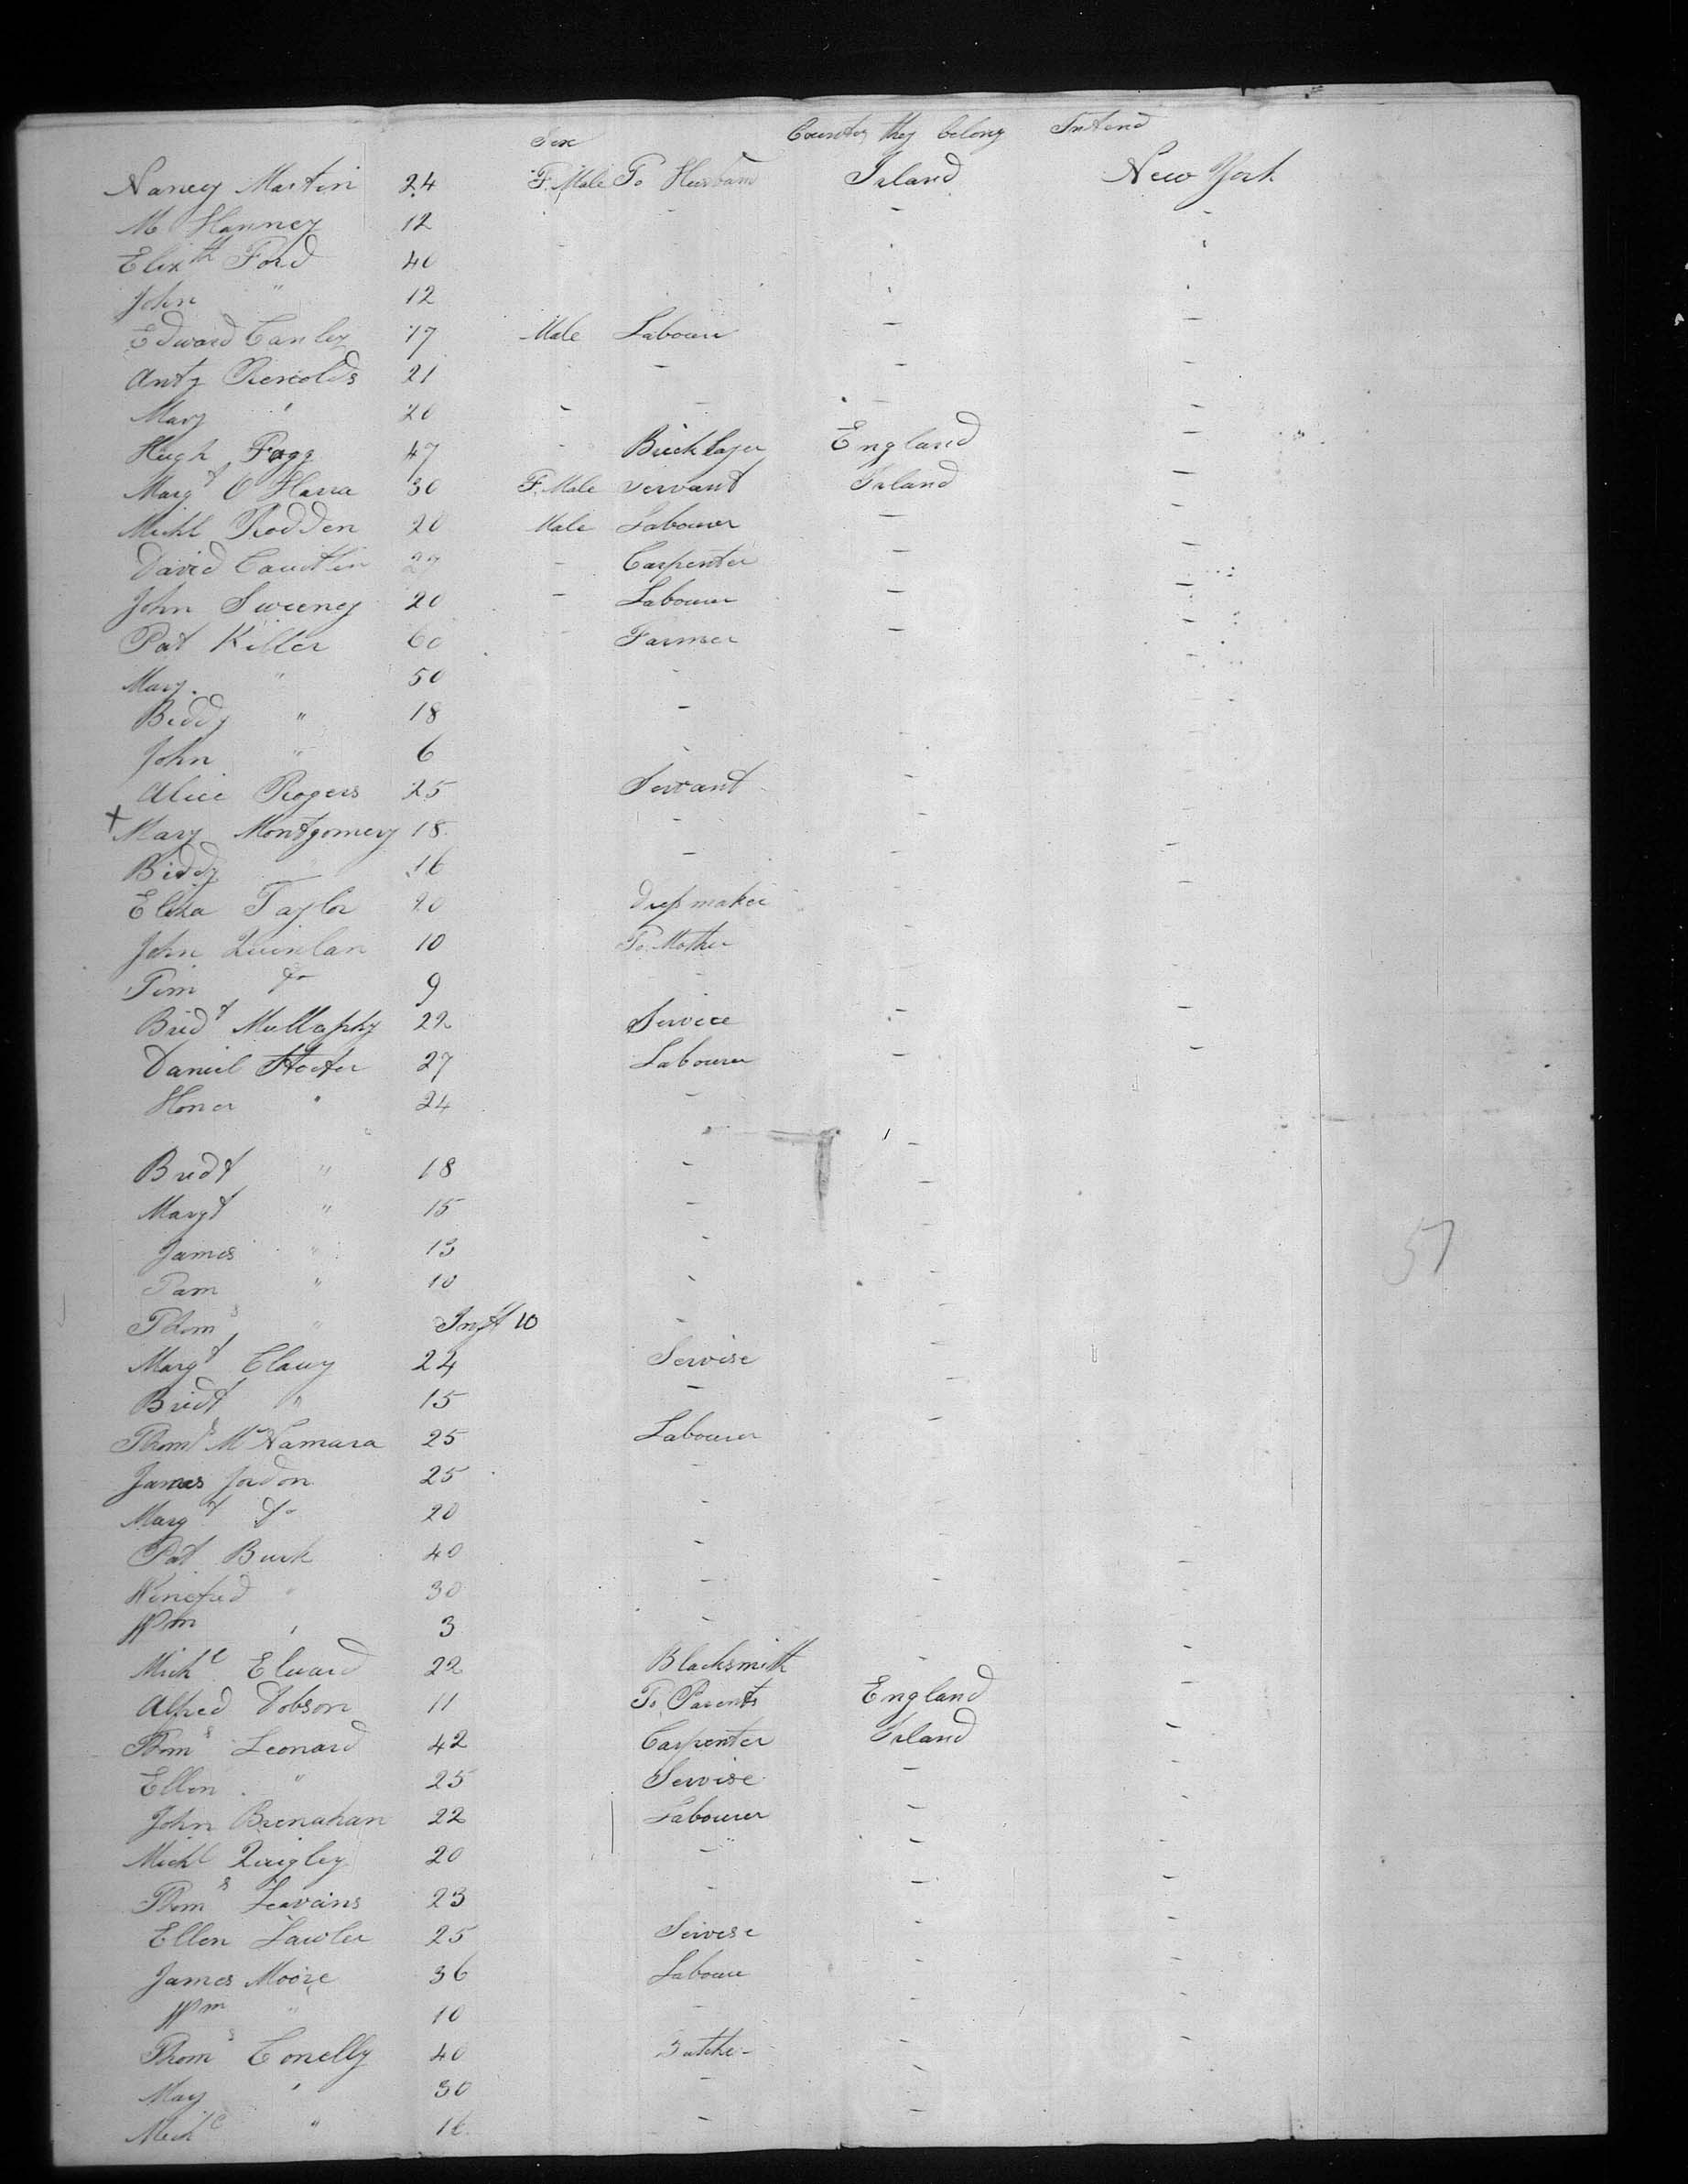 Sex Country they belong Intend
Nancy Martin 24 F. Male To Husband Irland New York
M Hanney 12
Elizth Ford 40
John " 12
Edward Canley 17 Male Labourer - -
Anty Renolds 21 - - -
Mary " 20 - - - -
Hugh Fogg 47 - Bricklayer England -
Margt O Hara 30 F. Male Servant Irland -
Michl Rodden 20 Male Labourer - -
David 27 - Carpenter - -
John Sweeney 20 - Labourer - -
Pat Killer 60 - Farmer - -
Mary " 50 - -
Biddy " 18 - -
John " 6 - -
Alice Rogers 25 Servant - -
+ Mary Montgomery 18 - -
Biddy " 16 - - -
Eliza Taylor 20 Dressmaker - -
John Quinlan 10 To Mother -
Tim Do 9 - -
Bridt Mullaphy 22 Service - -
Daniel Hoctor 27 Labourer - -
Honor " 24 -
Bridt " 18 - -
Margt " 15 - -
James " 13 -
Pam " 10 - -
Thoms " Inft 10 - -
Margt Clauy 24 Servise -
Bridt " 15 - -
Thoms McNamara 25 Labourer -
James Jordon 25 -
Margt Do 20 -
Pat Burk 40 - -
Winefred " 30 - - -
Wm " 3 -
Michl Elward 22 Blacksmith - -
Alfred Dobson 11 To Parents England -
Thoms Leonard 42 Carpenter Irland -
Ellen " 25 Servise - -
John Brenahan 22 Labourer - -
Michl Quigley 20 - - -
Thoms Leavins 23 - - -
Ellen Lawler 25 Servise - -
James Moore 36 Laboure - -
Wm " 10 - - -
Thoms Conelly 40 - -
May " 30 - - -
Michl " 16 - - -
57